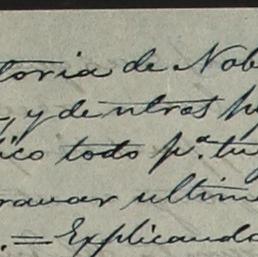 toria de Nob
, y de otros p
ico todo p.ª tu
ravar ultim
. = Explicando